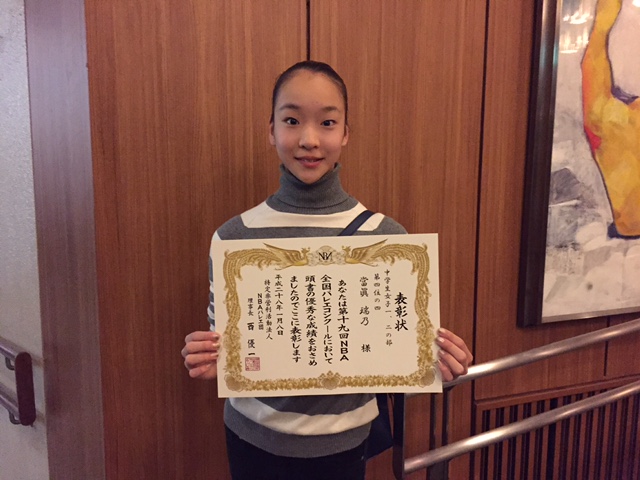 NBA
表彰状
中学生女子一、二の部
第四位の四
當眞 瑞乃 様
あなたは第十九回NBA
全国バレエコンクールにおいて
頭書の優秀な成績をおさめ
ましたのでここに表彰します
平成二十八年一月八日
特定非営利活動法人
NBAバレエ団
理事長 西 優一